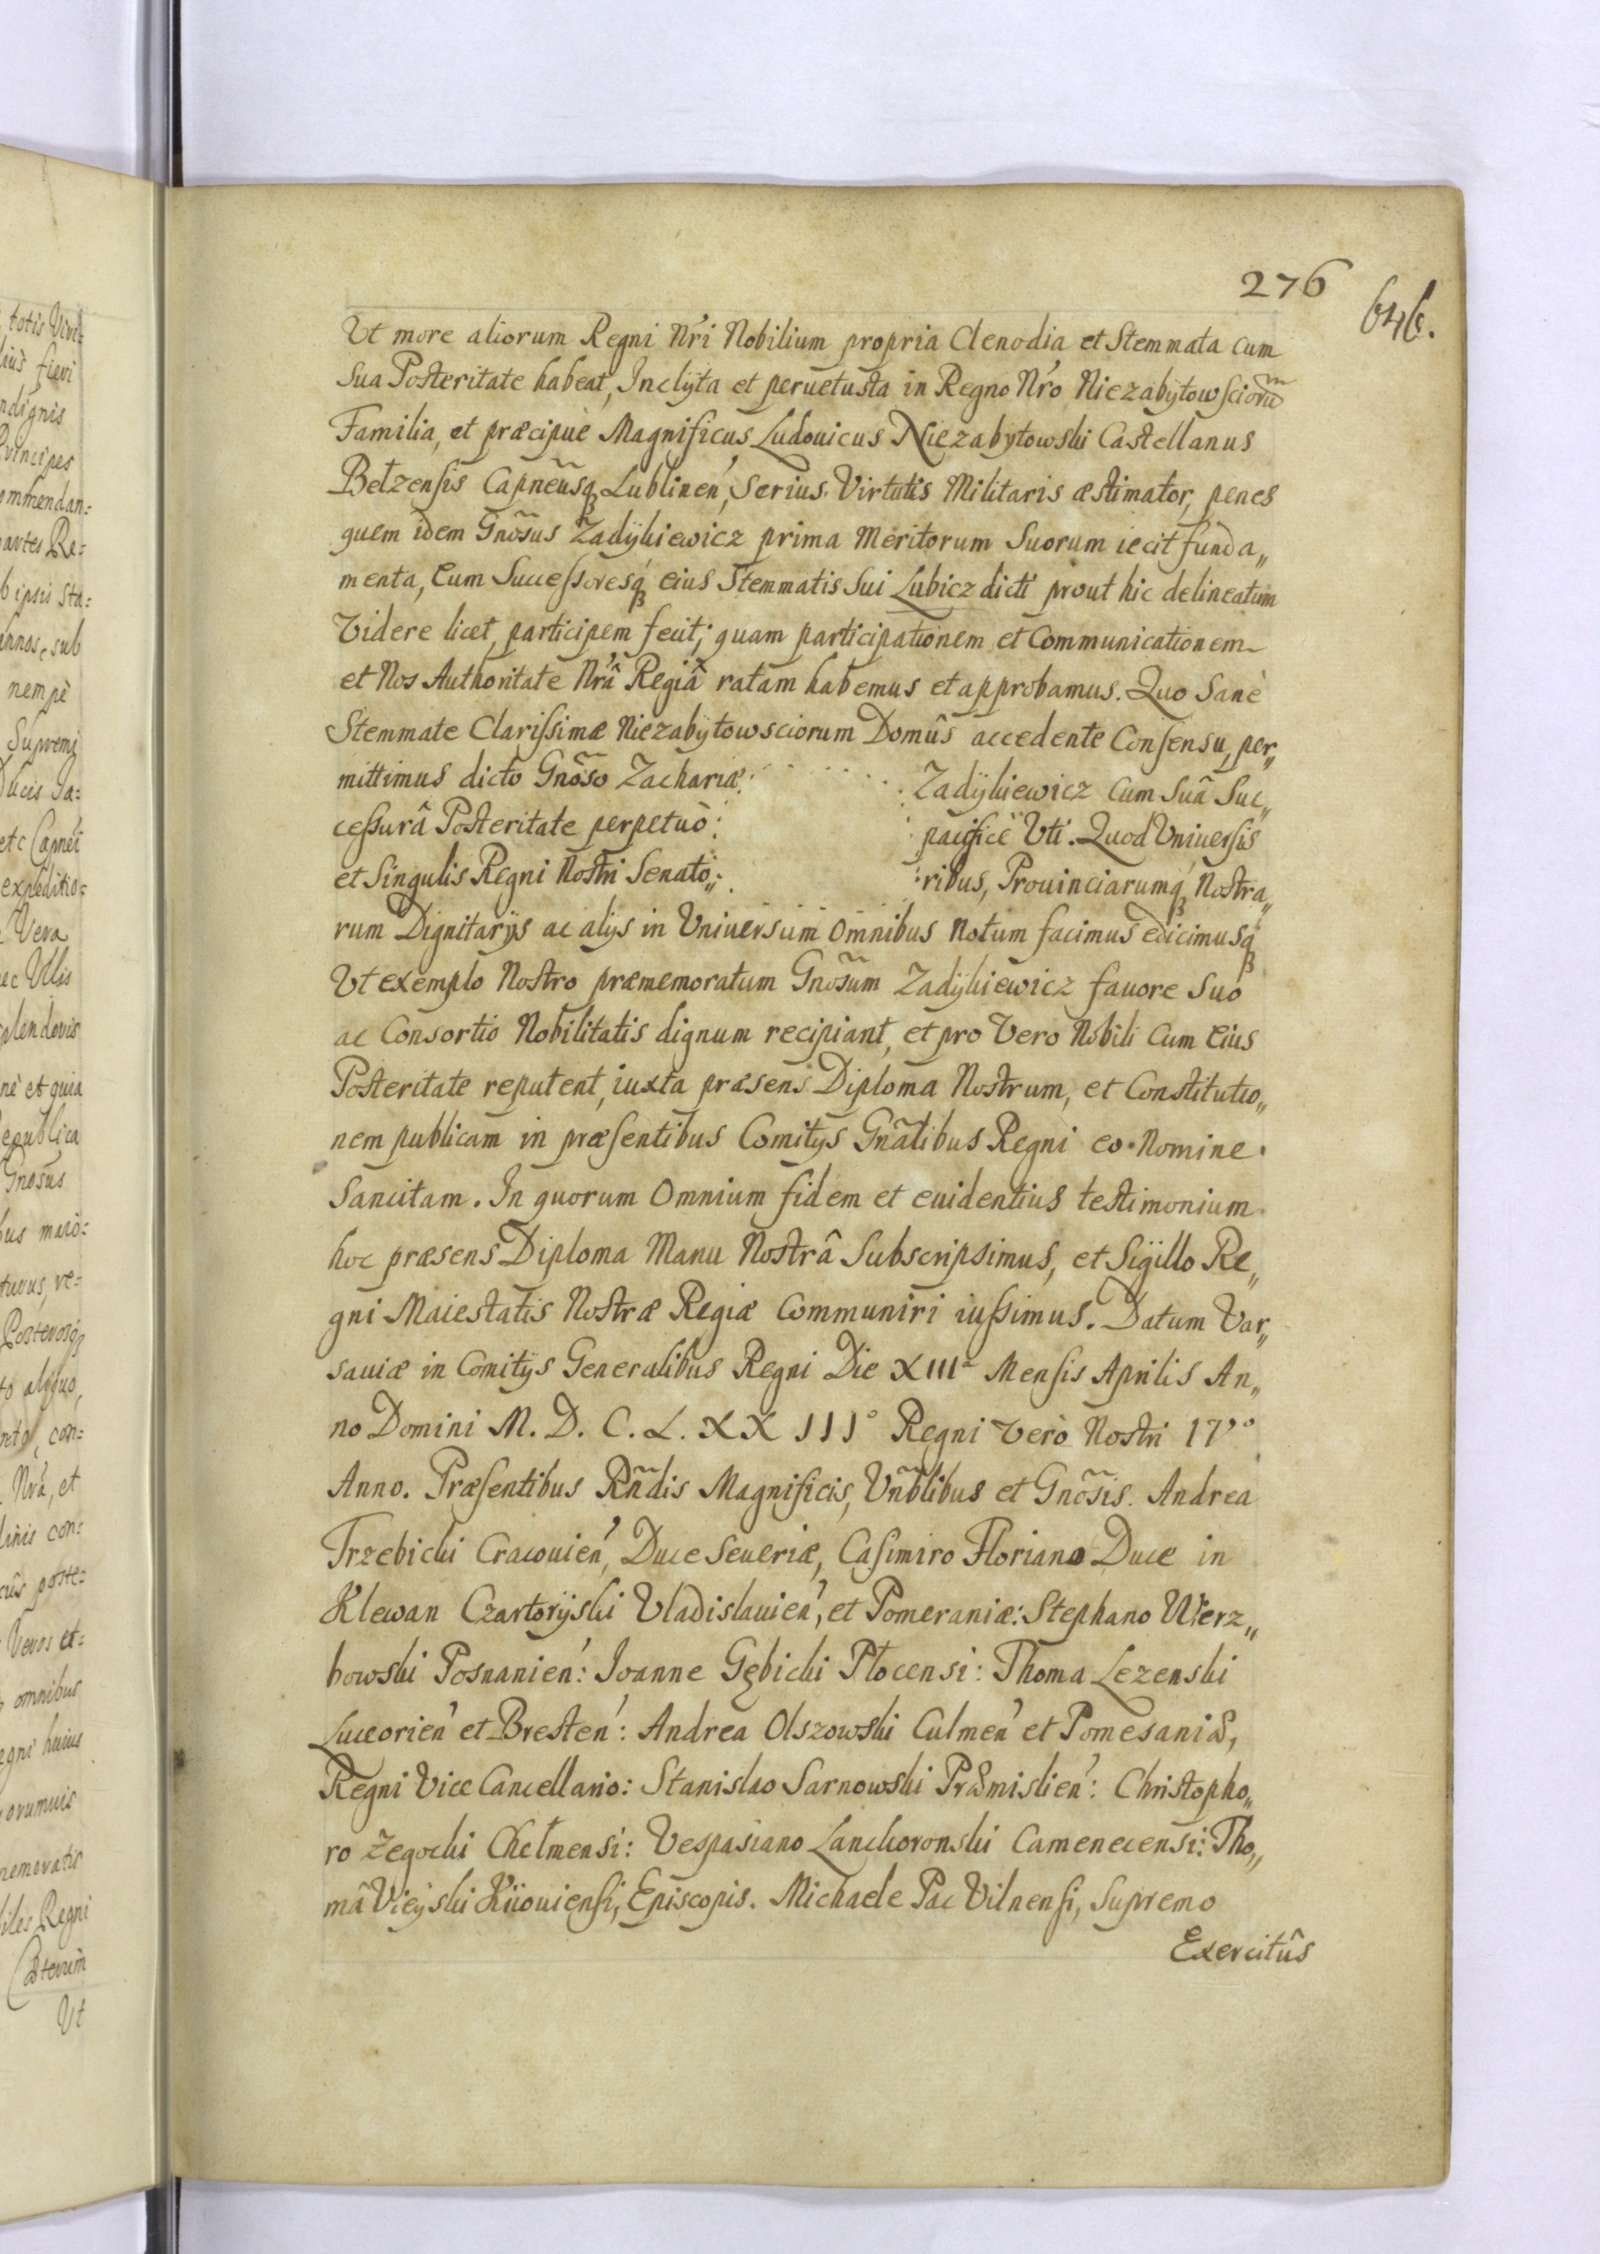 276
646.
Ut more aliorum Regni Nr̃i Nobilium propria Clenodia et Stemmata cum
Sua Posteritate habeat, Inclyta et peruetusta in Regno Nr̃o Niezabÿtowscioru͂m
Familia, et præcipuè Magnificus Ludouicus Niezabytowski Castellanus
Bełzensis Capneũsq́ Lublinen̓, Serius Virtutis Militaris æstimator, penes
quem idem Gnõsus Zadÿkiewicz prima Meritorum Suorum iecit funda„
menta, Eum Successoresq́ eius Stemmatis Sui Lubicz dicti prout hic delineatum
Videre licet, participem fecit; quam participationem et Communicationem
et Nos Authoritate Nr̃â Regiâ ratam habemus et approbamus. Quo Sanè
Stemmate Clarissimæ Niezabÿtowsciorum Domûs accedente Consensu, per„
mittimus dicto Gnõso Zachariæ Zadÿkiewicz Cum Suâ Suc„
cessurâ Posteritate perpetuò pacificè Uti. Quod Uniuersis
et Singulis Regni Nostri Senato„ ribus, Prouinciarumq́ Nostra„
rum Dignitarijs ac alijs in Uniuersum Omnibus Notum facimus edicimusq́
Ut exemplo Nostro præmemoratum Gnõsum Zadÿkiewicz fauore Suo
ac Consortio Nobilitatis dignum recipiant, et pro Vero Nobili Cum Eius
Posteritate reputent, iuxta præsens Diploma Nostrum, et Constitutio„
nem publicam in præsentibus Comitijs Gnãlibus Regni eo Nomine
Sancitam. In quorum Omnium fidem et euidentius testimonium
hoc præsens Diploma Manu Nostrâ Subscripsimus, et Sigillo Re„
gni Maiestatis Nostræ Regiæ Communiri iussimus. Datum Var„
sauiæ in Comitijs Generalibus Regni Die XIIIᵃ Mensis Aprilis An„
no Domini M. D. C. L. XX III° Regni Verò Nostri IV°
Anno. Præsentibus Rñdis Magnificis, Vñblibus et Gnõsis. Andrea
Trzebicki Cracouien̓, Duce Seueriæ, Casimiro Floriano Duce in
Klewan Czartorÿski Vladislauien̓, et Pomeraniæ: Stephano Wierz„
bowski Posnanien̓: Ioanne Gębicki Płocensi: Thoma Lezenski
Luceorien̓ et Bresten̓: Andrea Olszowski Culmen̓ et Pomesaniæ,
Regni Vice Cancellario: Stanislao Sarnowski Præmislien̓: Christopho„
ro Żegocki Chełmensi: Vespasiano Lanckoronski Camenecensi: Tho„
mâ Vieÿski Kiiouiensi, Episcopis. Michaele Pac Vilnensi, Supremo
Exercitûs